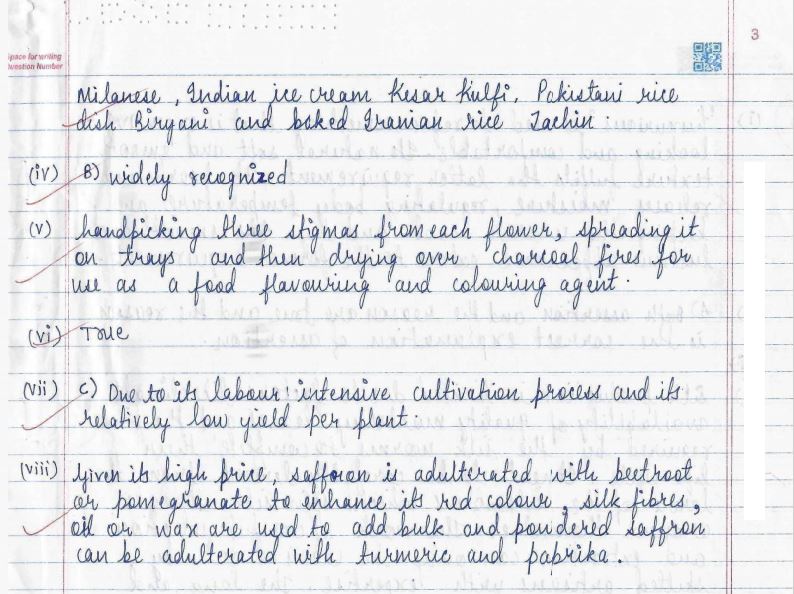 3
Space for writing
Question Number
Milanese, Indian ice cream Kesar Kulfi, Pakistani rice
dish Biryani and baked Iranian rice Tachin.
(iv) B) widely recognized
(v) handpicking three stigmas from each flower, spreading it
on trays and then drying over charcoal fires for
use as a food flavouring and colouring agent.
(vi) True
(vii) C) Due to its labour intensive cultivation process and its
relatively low yield per plant.
(viii) Given its high price, saffron is adulterated with beetroot
or pomegranate to enhance its red colour, silk fibres,
oil or wax are used to add bulk and powdered saffron
can be adulterated with turmeric and paprika.